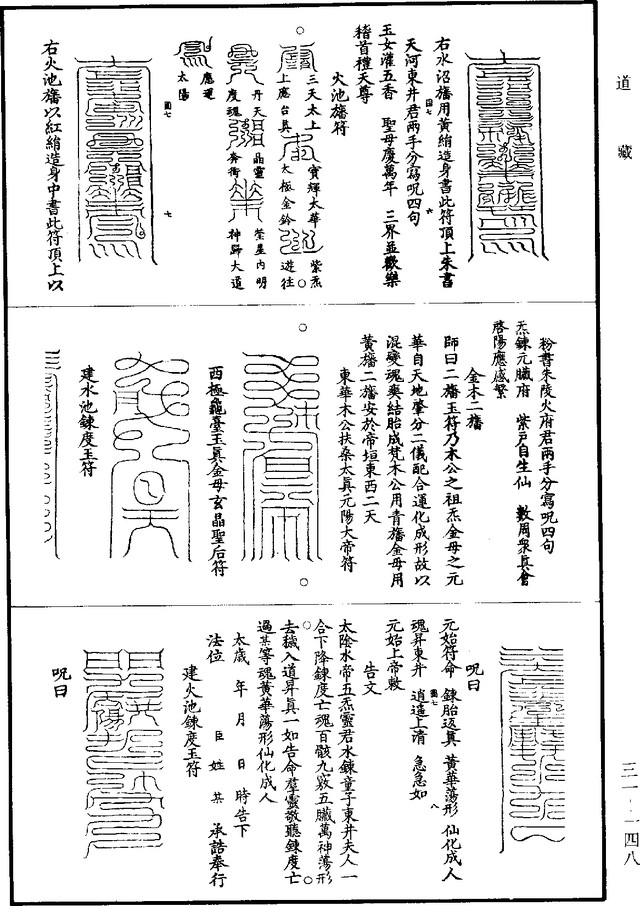 道藏
右水沼旛用黃絹造身書此符頂上朱書
天河東井君兩手分寫呪四句
玉女灌五香　聖母慶萬年　三界並歡樂
稽首禮天尊
火池旛符
三天太上　寶輝太華　紫炁
上處台真　太極金鈴　遊往
丹天　晶靈　瑩星內明
度魂　奔衝　神歸大道
應運
太陽
圖七　六
圖七　七
右火池旛以紅絹造身中書此符頂上以
粉書朱陵火府君兩手分寫呪四句
炁鍊元臟府　紫戶自生仙　數周衆真會
啓陽應感繁
金木二旛
師曰二旛玉符乃木公之祖炁金母之元
華自天地肇分二儀配合運化成形故以
混變魂爽結胎成梵木公用青旛金母用
黃旛二旛安於帝垣東西二天
東華木公扶桑太真元陽大帝符
西極龜臺玉真金母玄晶聖后符
建水池鍊度玉符
呪曰
元始符命　鍊胎返真　黃華蕩形　仙化成人
魂昇東井　逍遙上清　急急如
元始上帝敕
圖七　八
告文
太陰水帝五炁靈君水鍊童子東井夫人一
合下降鍊度亡魂百骸九竅五臟萬神蕩形
去穢入道昇真一如告命羣靈敬聽鍊度亡
過某等魂黃華蕩形仙化成人
太歲　年　月　日　時告下
法位　臣　姓　某　承誥奉行
建火池鍊度玉符
呪曰
三一－一四八